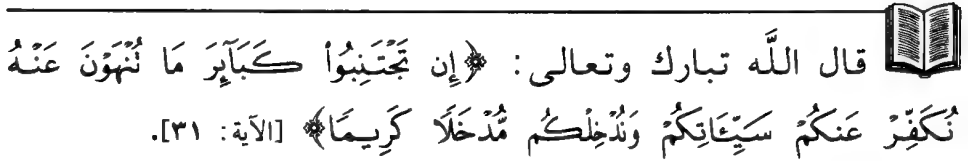 قال اللَّه تبارك وتعالى: ﴿إِن تَجْتَنِبُوا۟ كَبَآئِرَ مَا نُنْهَوْنَ عَنْهُ
نُكَفِّرْ عَنكُمْ سَيِّـَٔاتِكُمْ وَنُدْخِلْكُم مُّدْخَلًا كَرِيمًا﴾ [الآية: ٣١].